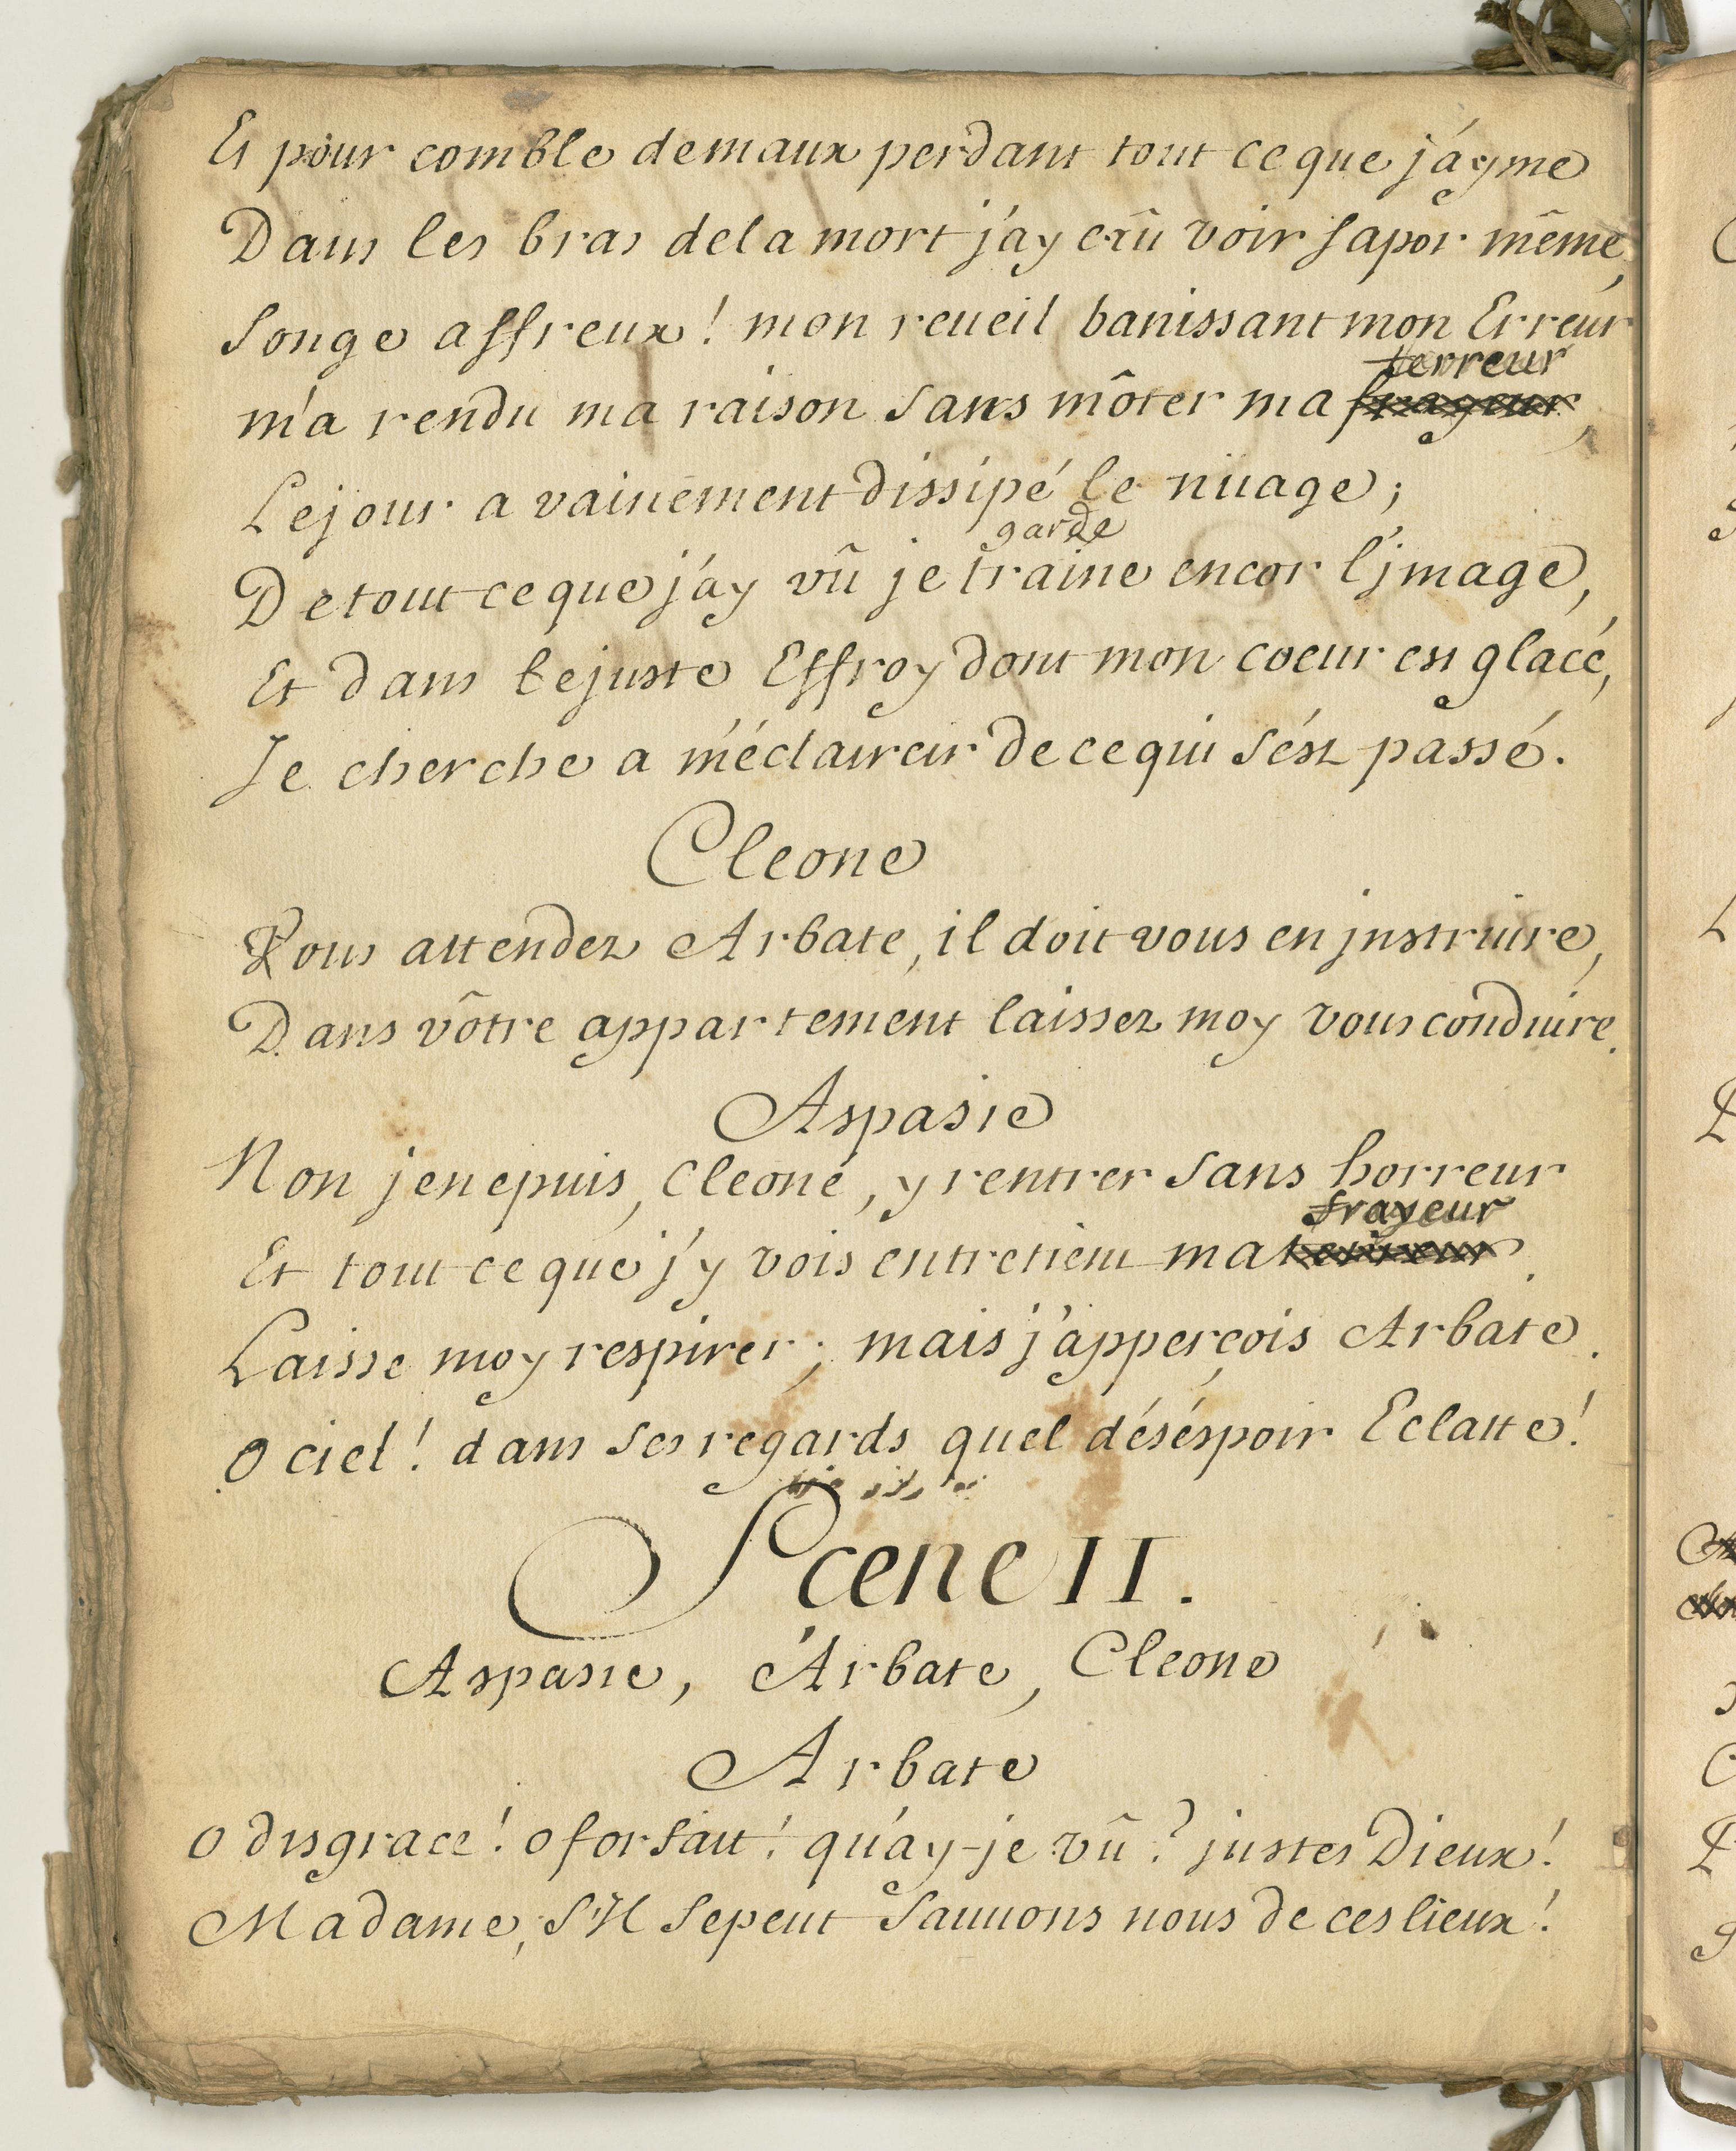 Et pour comble de maux perdant tout ce que j'ayme
Dans les bras de la mort j'ay crû voir sapor même,
Songe affreux! mon reueil banissant mon Erreur
terreur
m'a rendu ma raison sans m'ôter ma frayeur,
Le jour a vainement dissipé le nüage;
garde
De tout ce que j'ay vû je traine encor l'jmage,
Et dans le juste Effroy dont mon coeur est glacé,
Je cherche a m'éclaircir de ce qui s'ést passé.
Cleone
Vous attendez Arbate, il doit vous en jnstruire,
Dans vôtre appartement laissez moy vous conduire.
Aspasie
Non je ne puis, Cleone, y rentrer sans horreur
frayeur
Et tout ce que j'y vois entretient ma terreur.
Laisse moy respirer; mais j'apperçois Arbate.
O ciel! dans ses regards quel déséspoir Eclatte!
Scene II.
Aspasie, Arbate, Cleone
Arbate
O disgrace! o forfait! qu'ay-je vû? justes Dieux!
Madame, s'Il se peut sauuons nous de ces lieux!